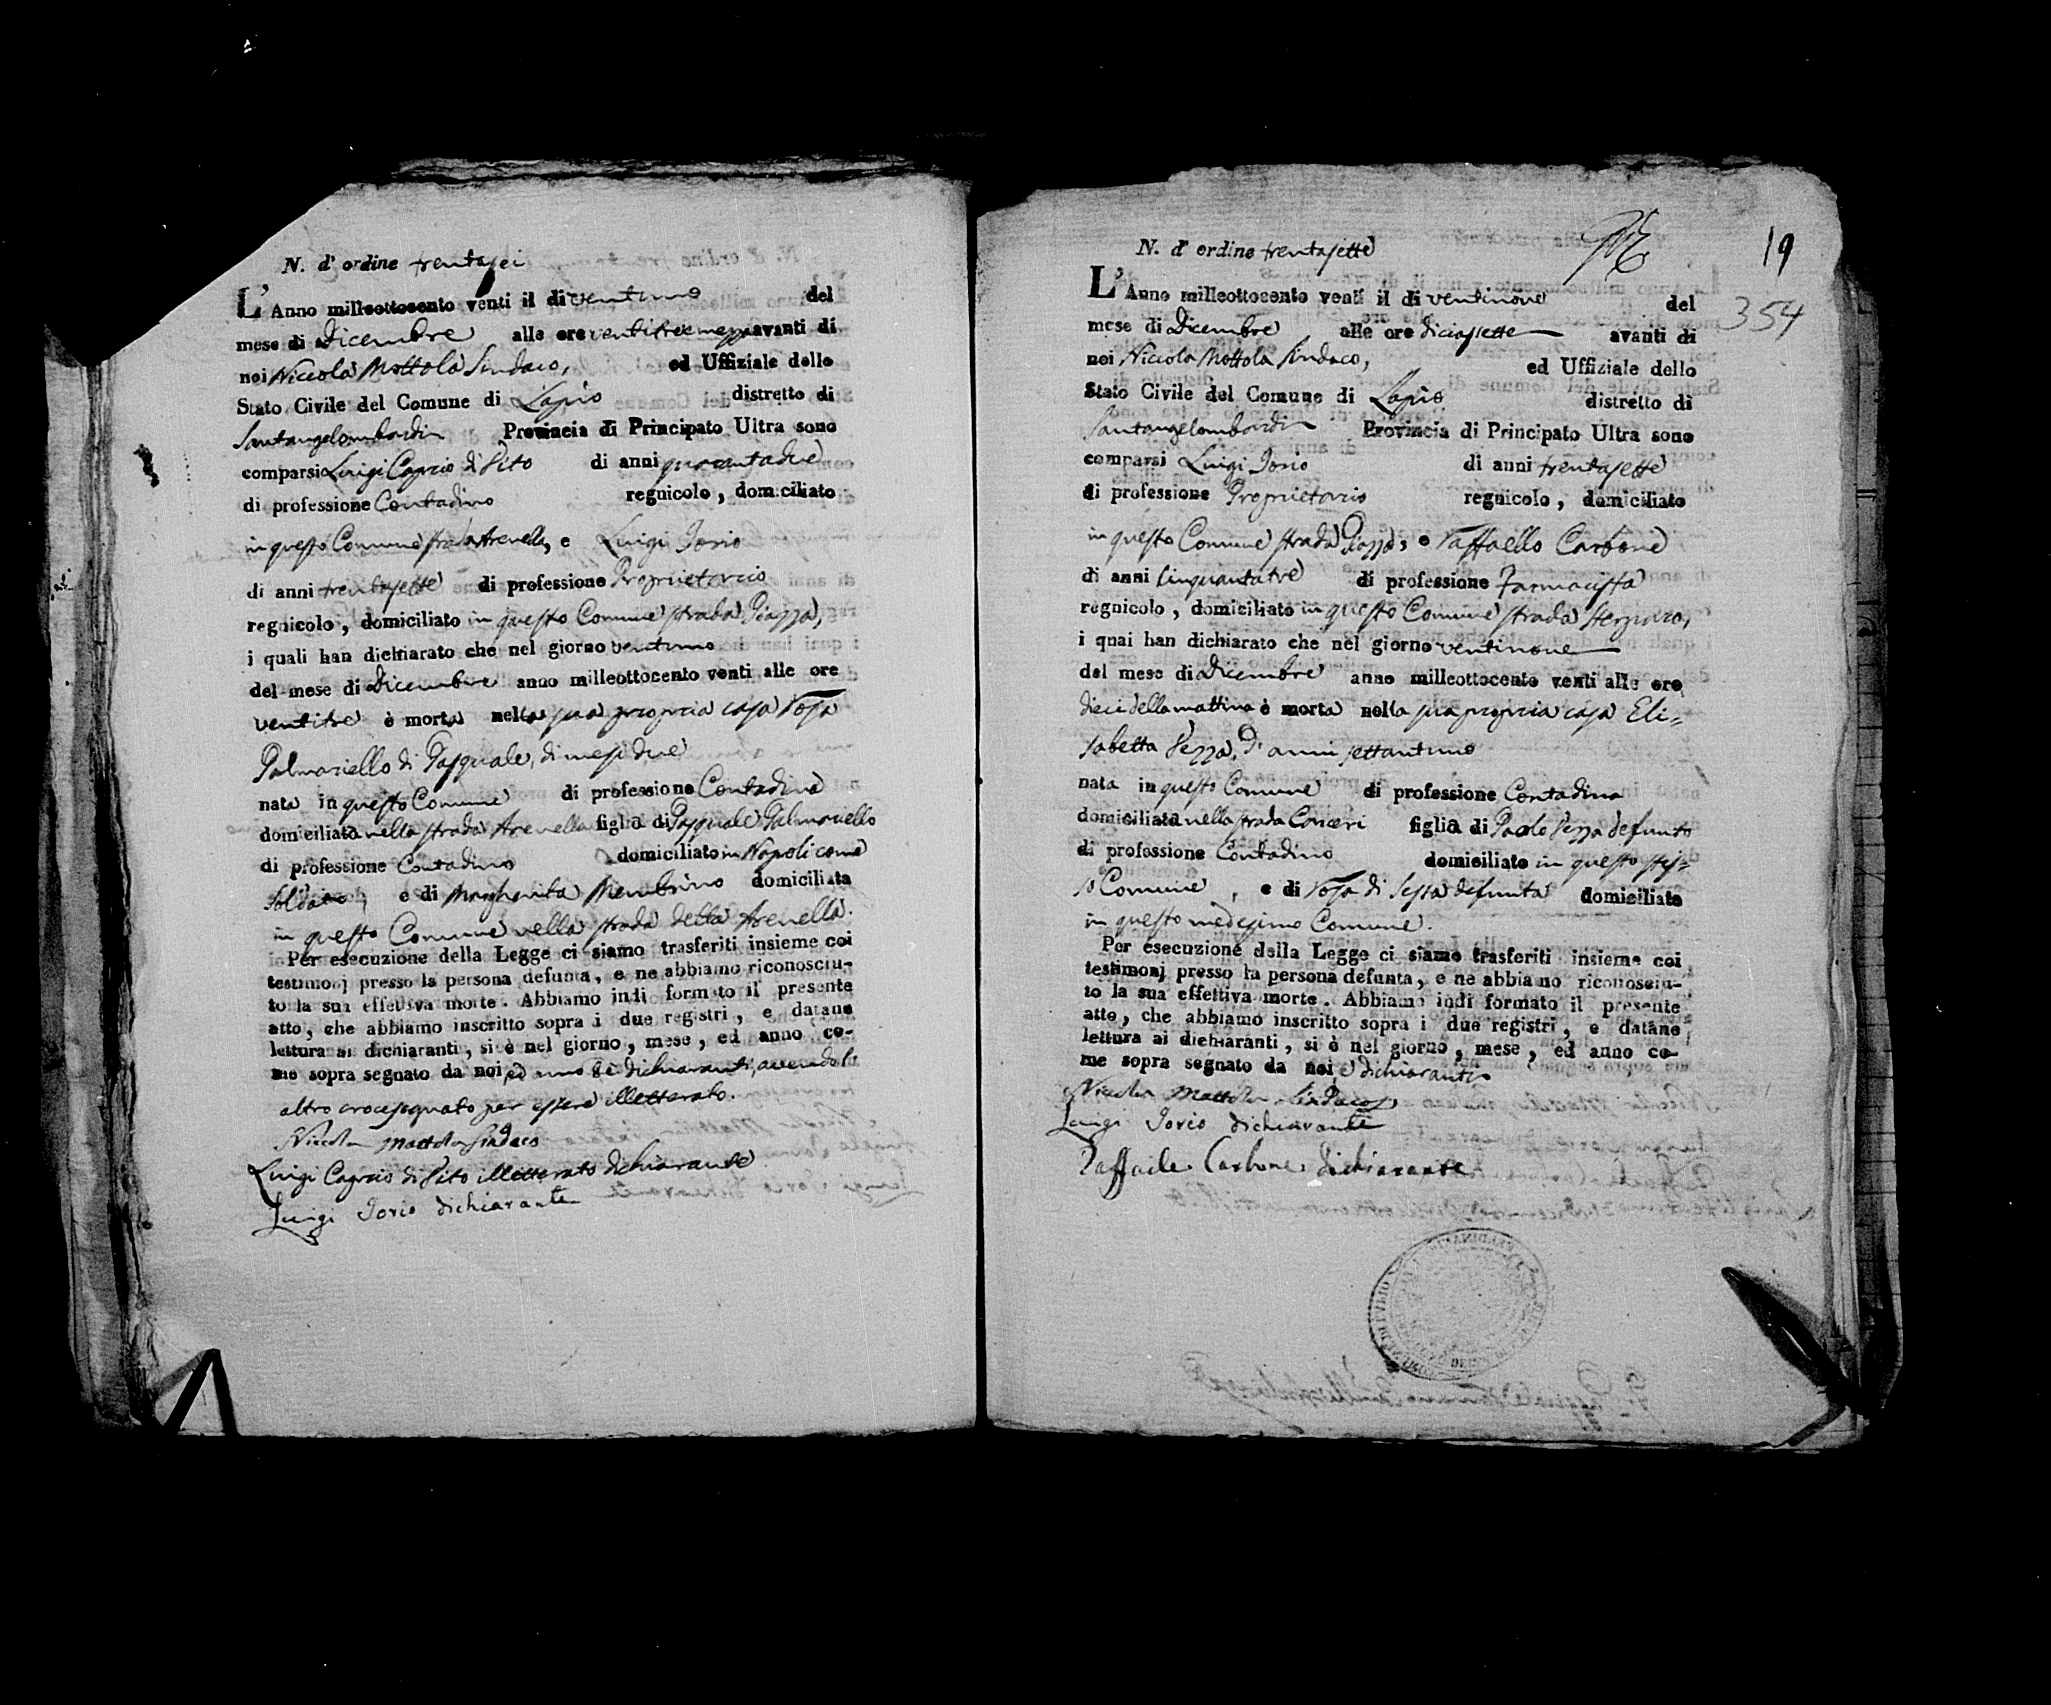 N. d' ordine trentasei
L' Anno milleottocento venti il di ventuno del
mese di Dicembre alle ore ventitre e mezza avanti di
noi Niccola Mottola Sindaco, ed Uffiziale dello
Stato Civile del Comune di Lapio distretto di
Santangelombardi Provincia di Principato Ultra sono
comparsi Luigi Caprio di Sito di anni quarantadue
di professione Contadino regnicolo, domiciliato
in questo Comune strada Arenella, e Luigi Iorio
di anni trentasette di professione Proprietario
regnicolo, domiciliato in questo Comune strada Piazza,
i quali han dichiarato che nel giorno ventuno
del mese di Dicembre anno milleottocento venti alle ore
ventitre è morta nella sua propria casa Rosa
Palmariello di Pasquale, di mesi due
nata in questo Comune di professione Contadina
domiciliata nella strada Arenella figlia di Pasquale Palmariello
di professione Contadino domiciliato in Napoli come
Soldato, e di Margherita Membrino domiciliata
in questo Comune nella strada della Arenella.
Per esecuzione della Legge ci siamo trasferiti insieme coi
testimonj presso la persona defunta, e ne abbiamo riconosciu-
to la sua effettiva morte. Abbiamo indi formato il presente
atto, che abbiamo inscritto sopra i due registri, e datane
lettura ai dichiaranti, si è nel giorno, mese, ed anno co-
me sopra segnato da noi, ed uno de' dichiaranti, avendo l'
altro crocesegnato per essere illetterato.
Niccola Mottola Sindaco
Luigi Caprio di Sito illetterato dichiarante
Luigi Iorio dichiarante
19
354
N. d' ordine trentasette
L' Anno milleottocento venti il di ventinove del
mese di Dicembre alle ore diciassette avanti di
noi Niccola Mottola Sindaco, ed Uffiziale dello
Stato Civile del Comune di Lapio distretto di
Santangelombardi Provincia di Principato Ultra sono
comparsi Luigi Iorio di anni trentasette
di professione Proprietario regnicolo, domiciliato
in questo Comune strada Piazza, e Raffaello Carbone
di anni cinquantatre di professione Farmacista
regnicolo, domiciliato in questo Comune strada
i quai han dichiarato che nel giorno ventinove
del mese di Dicembre anno milleottocento venti alle ore
dieci della mattina è morta nella sua propria casa Eli=
sabetta Pezza, di anni settantuno
nata in questo Comune di professione Contadina
domiciliata nella strada Carceri figlia di Paolo Pezza defunto
di professione Contadino domiciliato in questo stes=
so Comune, e di Rosa di Sessa defunta domiciliata
in questo medesimo Comune.
Per esecuzione della Legge ci siamo trasferiti insieme coi
testimonj presso la persona defunta, e ne abbiamo riconosciu-
to la sua effettiva morte. Abbiamo indi formato il presente
atto, che abbiamo inscritto sopra i due registri, e datane
lettura ai dichiaranti, si è nel giorno, mese, ed anno co-
me sopra segnato da noi, e dichiaranti
Niccola Mottola Sindaco
Luigi Iorio dichiarante
Raffaele Carbone dichiarante